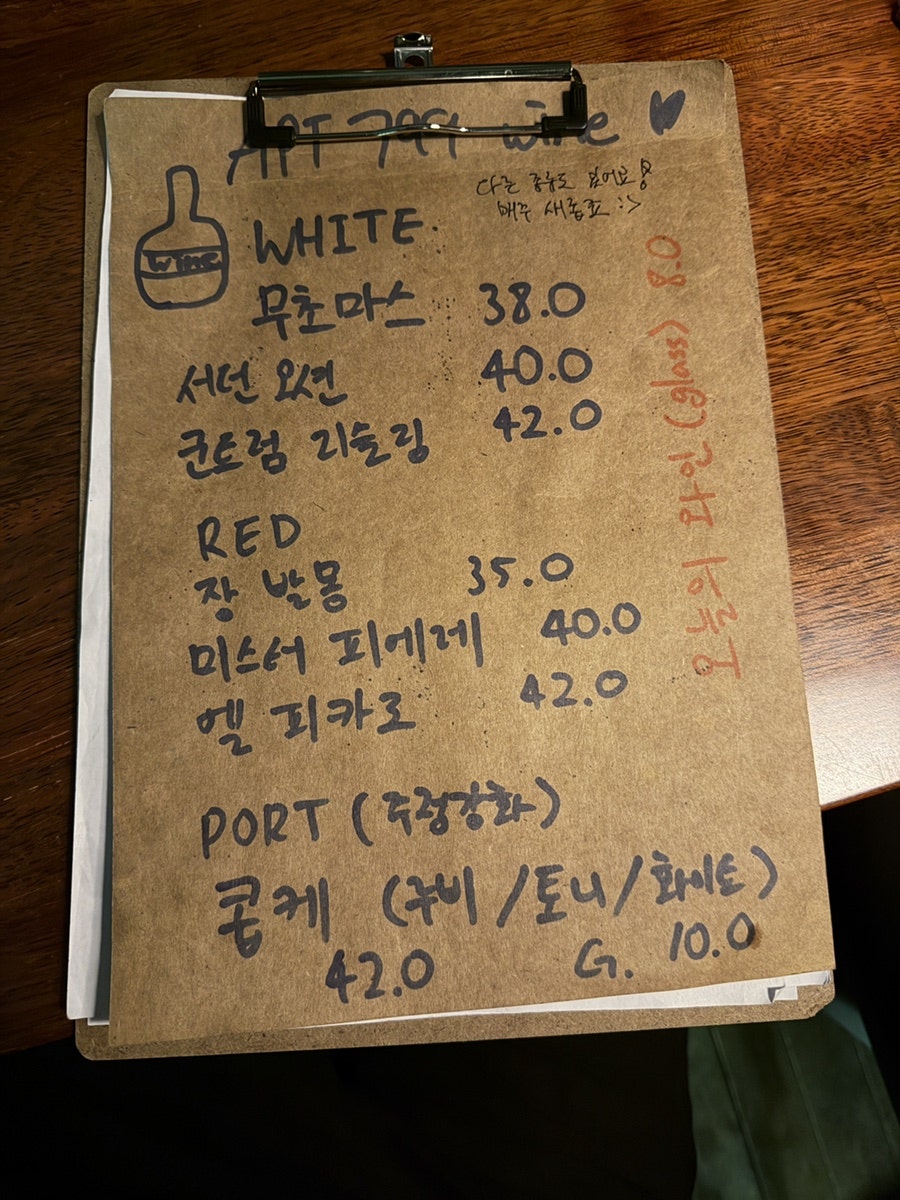 APT wine
다른 종류도 있어요!
매주 새롭죠 :>
wine
WHITE
무초마스 38.0
서던 오션 40.0
군트럼 리슬링 42.0
RED
장 발몽 35.0
미스터 피에레 40.0
엘 피카로 42.0
PORT (주정강화)
콥케 (루비/토니/화이트)
42.0 G. 10.0
오늘의 와인 (glass) 8.0